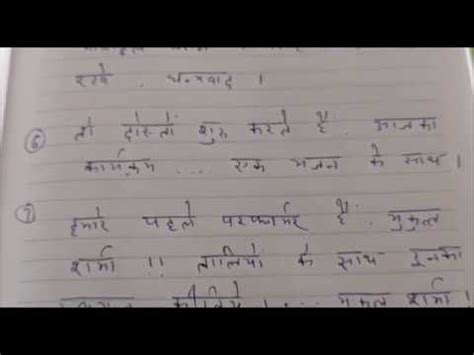 रखे. धन्यवाद ।
⑥ तो दोस्तों शुरु करते है. आजका
कार्यक्रम ... एक भजन के साथ ।
⑦ हमारे पहले परफार्मर है. मुकुल
शर्मा !! तालियों के साथ इनका
कीजिये ! ... मुकुल शर्मा !